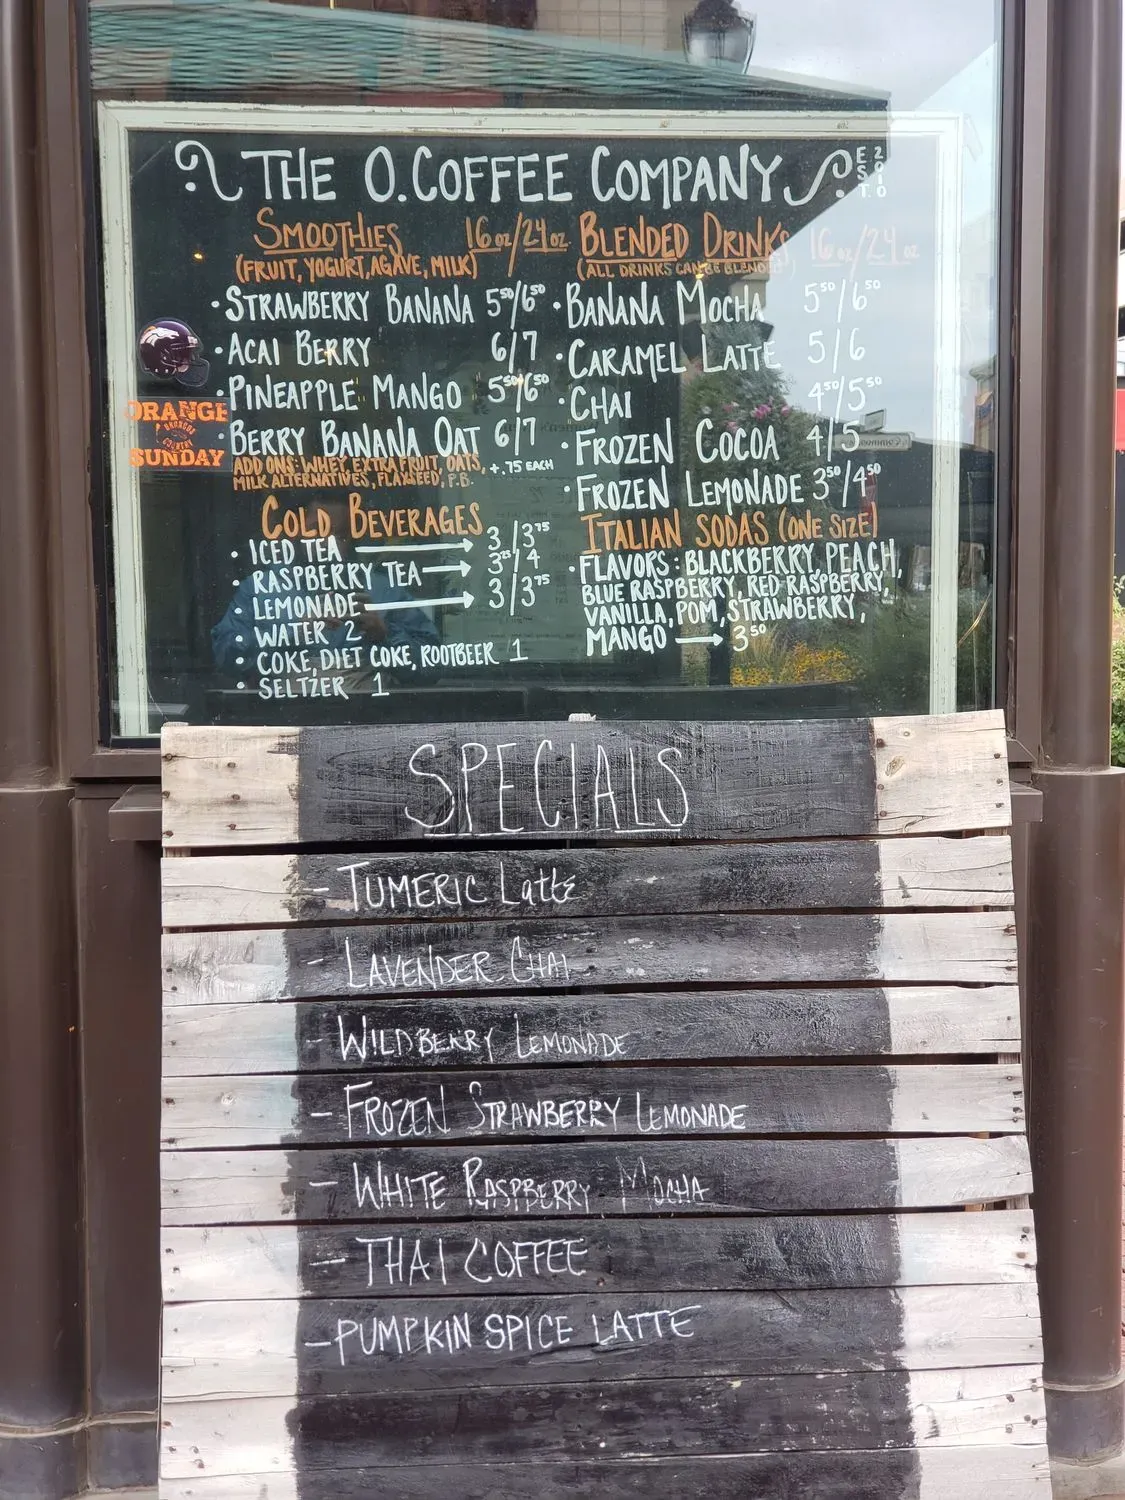 THE O.COFFEE COMPANY
EST. 2010
SMOOTHIES 16oz/24oz
(FRUIT, YOGURT, AGAVE, MILK)
• STRAWBERRY BANANA 5⁵⁰/6⁵⁰
• ACAI BERRY 6/7
• PINEAPPLE MANGO 5⁵⁰/6⁵⁰
• BERRY BANANA OAT 6/7
ADD ONS: WHEY, EXTRA FRUIT, OATS, +.75 EACH
MILK ALTERNATIVES, FLAXSEED, P.B.
ORANGE
BRONCOS
COUNTRY
SUNDAY
COLD BEVERAGES
• ICED TEA → 3/3⁷⁵
• RASPBERRY TEA → 3²⁵/4
• LEMONADE → 3/3⁷⁵
• WATER 2
• COKE, DIET COKE, ROOTBEER 1
• SELTZER 1
BLENDED DRINKS 16oz/24oz
(ALL DRINKS CAN BE BLENDED)
• BANANA MOCHA 5⁵⁰/6⁵⁰
• CARAMEL LATTE 5/6
• CHAI 4⁵⁰/5⁵⁰
• FROZEN COCOA 4/5
• FROZEN LEMONADE 3⁵⁰/4⁵⁰
ITALIAN SODAS (ONE SIZE)
• FLAVORS: BLACKBERRY, PEACH,
BLUE RASPBERRY, RED RASPBERRY,
VANILLA, POM, STRAWBERRY,
MANGO → 3⁵⁰
SPECIALS
- TUMERIC Latte
- LAVENDER CHAI
- WILDBERRY LEMONADE
- FROZEN STRAWBERRY LEMONADE
- WHITE RASPBERRY MOCHA
- THAI COFFEE
- PUMPKIN SPICE LATTE